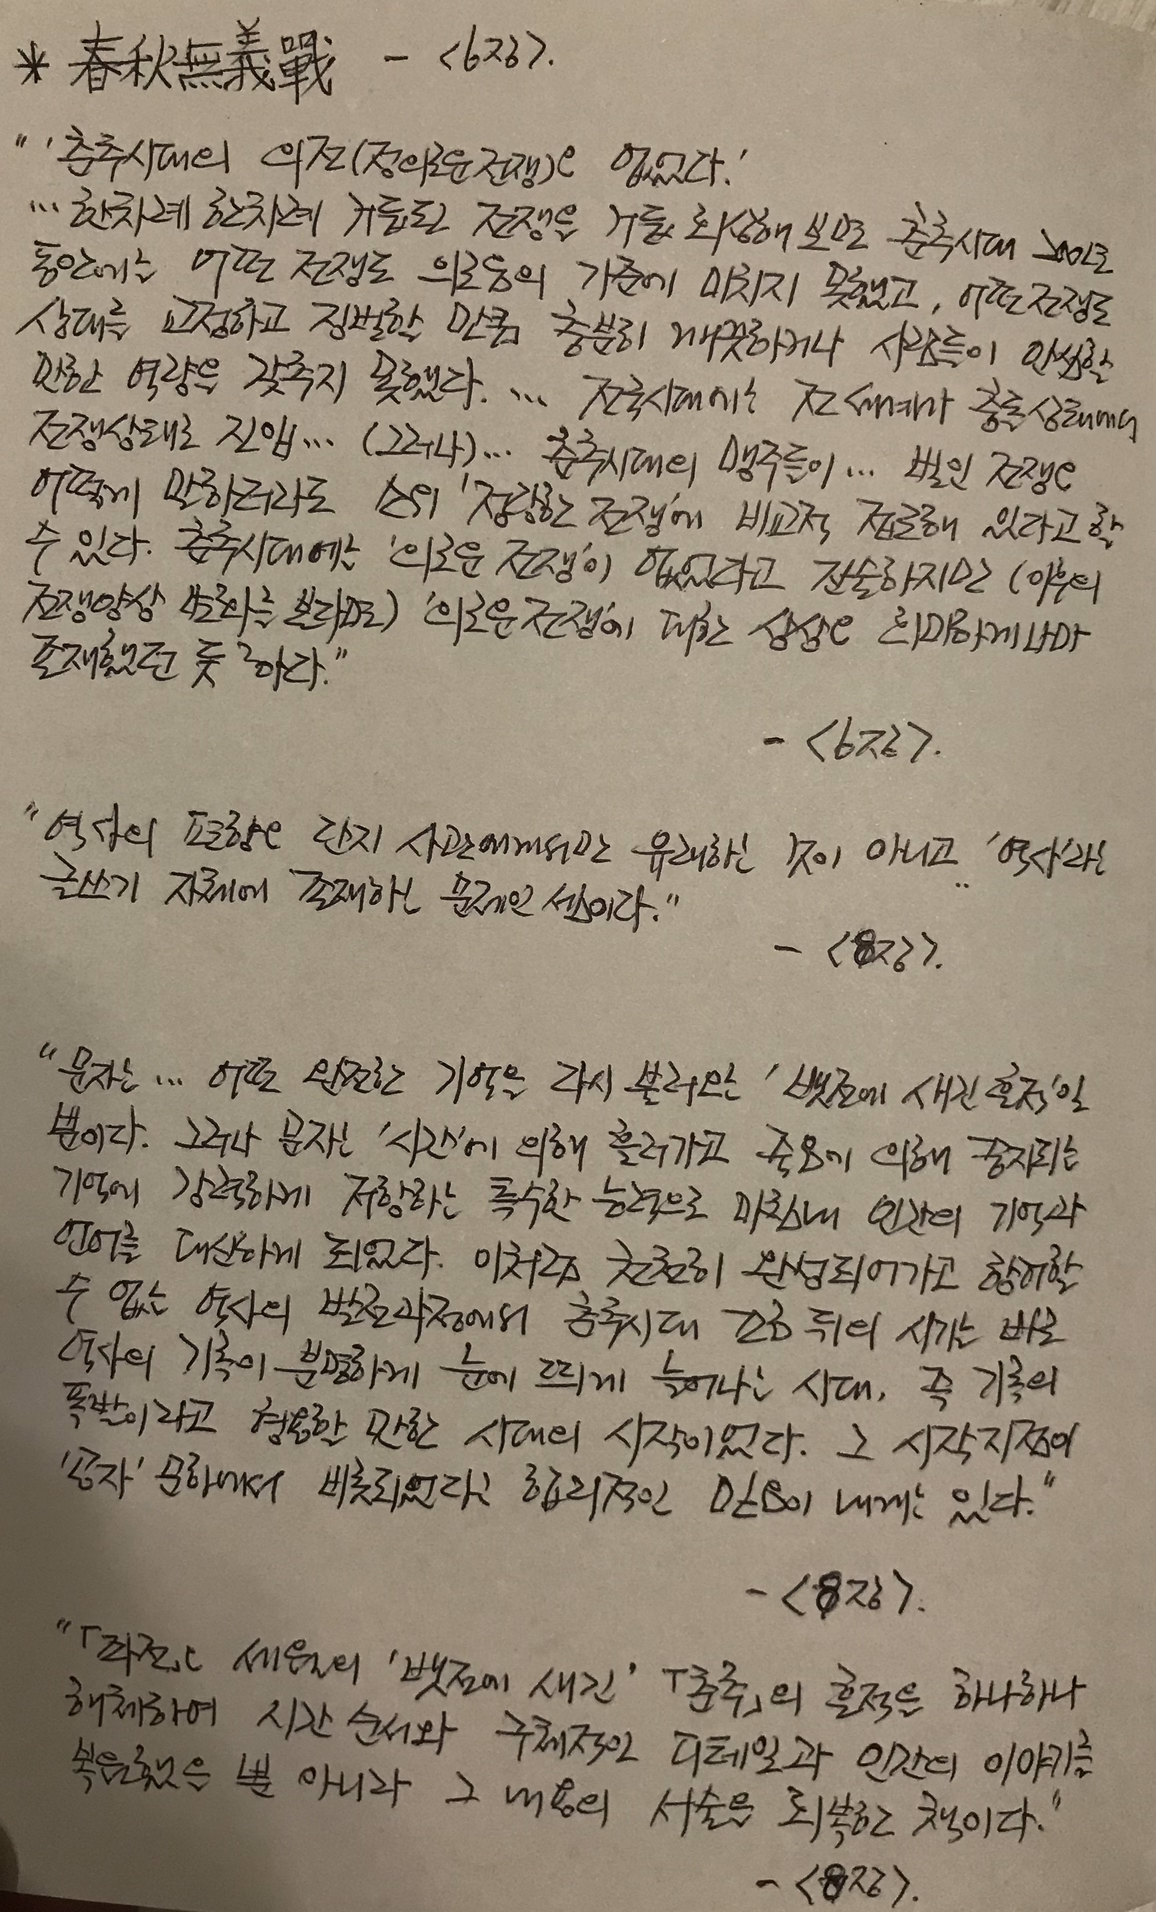 * 春秋無義戰 - <6장>.
"'춘추시대의 의전(정의로운 전쟁)은 없었다.'
… 한차례 한차례 거듭된 전쟁을 거듭 회상해 보면 춘추시대 200년
동안에는 어떤 전쟁도 의로움의 기준에 미치지 못했고, 어떤 전쟁도
상대를 교정하고 징벌할 만큼 충분히 깨끗하거나 사람들이 안심할
만한 역량을 갖추지 못했다. … 전국시대에는 전 세계가 충돌상태에서
전쟁상태로 진입… (그러나)… 춘추시대의 맹주들이… 벌인 전쟁은
어떻게 말하더라도 소위 '정당한 전쟁'에 비교적 접근해 있다고 할
수 있다. 춘추시대에는 '의로운 전쟁'이 없었다고 진술하지만 (이후의
전쟁양상 변화를 본다면) '의로운 전쟁'에 대한 상상은 희미하게나마
존재했던 듯하다."
- <6장>.
"역사의 편향은 단지 사관에게서만 유래하는 것이 아니고 '역사'라는
글쓰기 자체에 존재하는 문제인 셈이다."
- <8장>.
"문자는… 어떤 완전한 기억을 다시 불러오는 '뱃전에 새긴 흔적'일
뿐이다. 그러나 문자는 '시간'에 의해 흘러가고 죽음에 의해 중지되는
기억에 강력하게 저항하는 특수한 능력으로 마침내 인간의 기억과
언어를 대신하게 되었다. 이처럼 천천히 완성되어가고 항거할
수 없는 역사의 발전과정에서 춘추시대 중후 뒤의 시기는 바로
역사의 기록이 분명하게 눈에 띄게 늘어나는 시대, 즉 기록의
폭발이라고 형용할 만한 시대의 시작이었다. 그 시작지점이
'공자' 문하에서 비롯되었다는 합리적인 믿음이 내게는 있다."
- <8장>.
"「좌전」은 세월의 '뱃전에 새긴' 「춘추」의 흔적을 하나하나
해체하여 시간 순서와 구체적인 디테일과 인간의 이야기를
복원했을 뿐 아니라 그 내용의 서술을 회복한 책이다."
- <8장>.